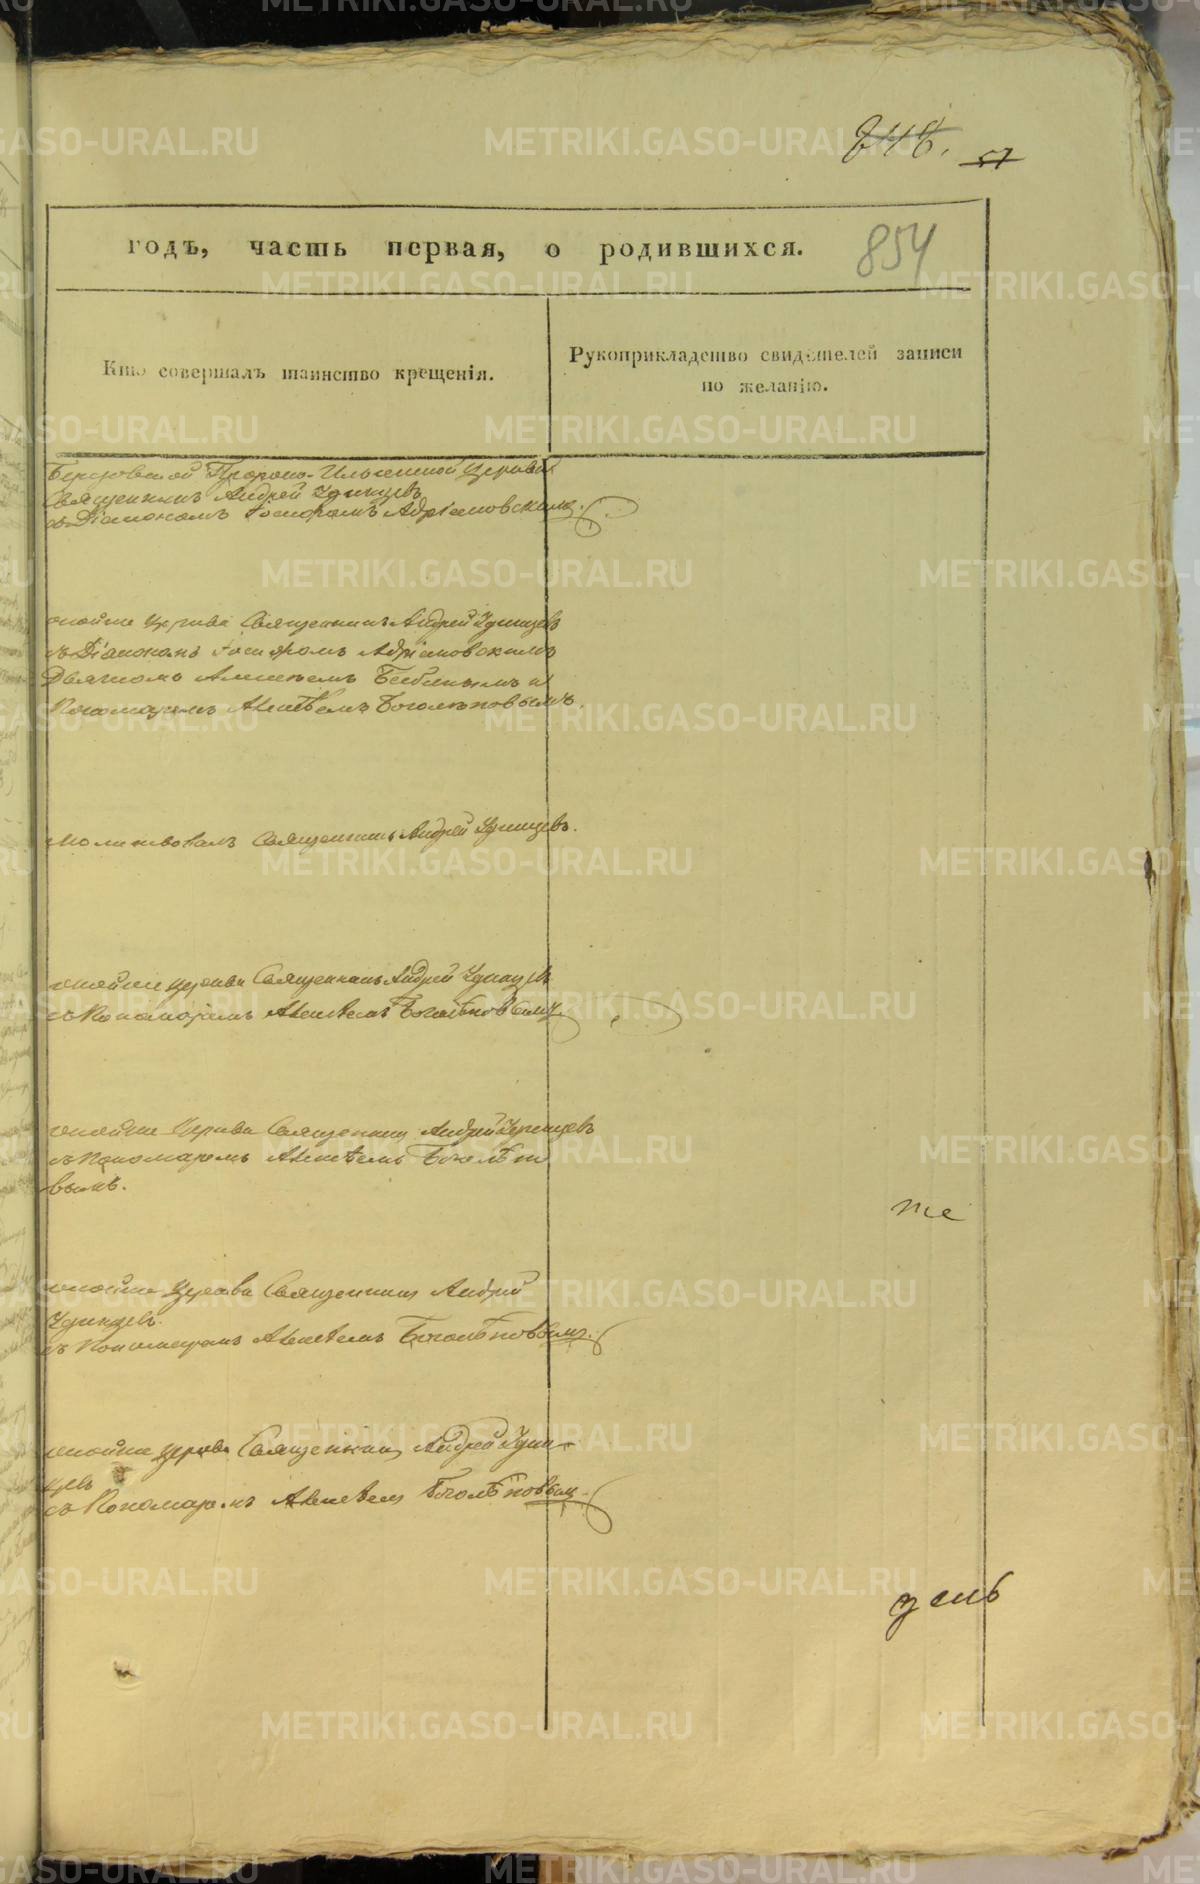 848. 57
годъ, часть первая, о родившихся.
854
Кто совершалъ таинство крещенія.
Рукоприкладство свидѣтелей записи
по желанію.
Пророко-Ильинской Церкви
Священникъ Андрей Удинцевъ
съ Діакономъ Адріановскимъ.
тойже Церкви Священникъ Андрей Удинцевъ
съ Діакономъ Адріановскимъ
Дьячкомъ Алексѣемъ и
Пономаремъ Алексѣемъ Боголѣповымъ.
Молитвовалъ Священникъ Андрей Удинцевъ.
тойже Церкви Священникъ Андрей Удинцевъ
съ Пономаремъ Алексѣемъ Боголѣповымъ
тойже Церкви Священникъ Андрей Удинцевъ
съ Пономаремъ Алексѣемъ Боголѣпо
вымъ.
тойже Церкви Священникъ Андрей
Удинцевъ.
съ Пономаремъ Алексѣемъ Боголѣповымъ.
тойже Церкви Священникъ Андрей Удин-
цевъ
съ Пономаремъ Алексѣемъ Боголѣповымъ
METRIKI.GASO-URAL.RU